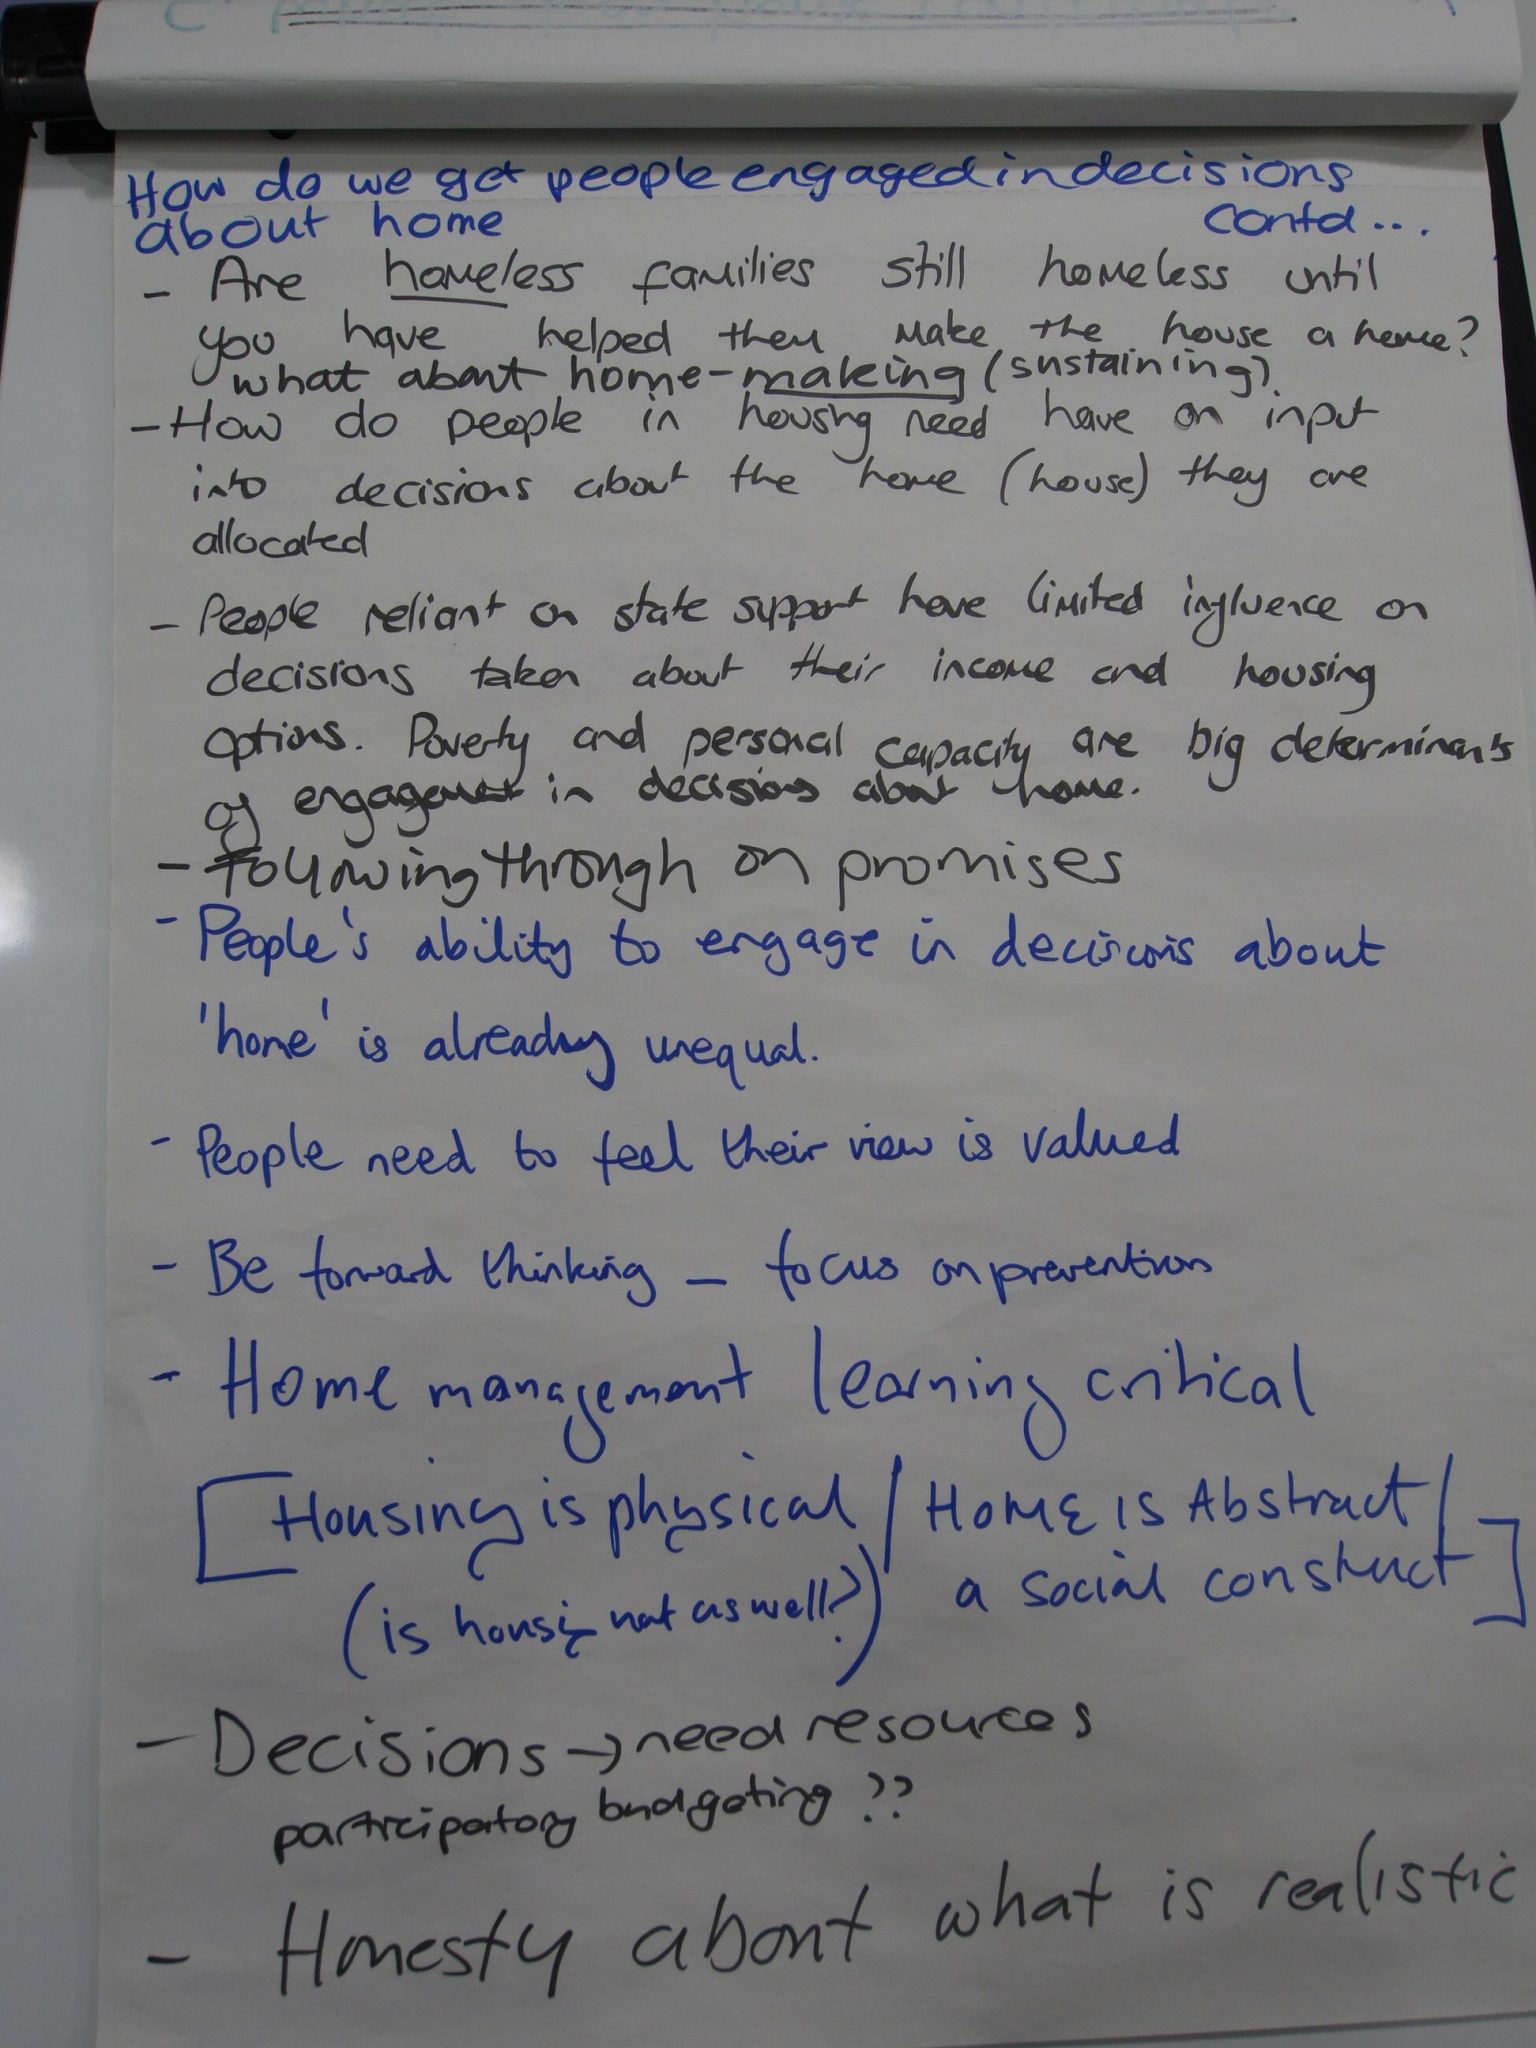 How do we get people engaged in decisions
about home contd...
- Are homeless families still homeless until
you have helped them make the house a home?
what about home-making (sustaining)
- How do people in housing need have an input
into decisions about the home (house) they are
allocated
- People reliant on state support have limited influence on
decisions taken about their income and housing
options. Poverty and personal capacity are big determinants
of engagement in decisions about home.
- Following through on promises
- People's ability to engage in decisions about
'home' is already unequal.
- People need to feel their view is valued
- Be forward thinking - focus on prevention
- Home management learning critical
[Housing is physical / Home is Abstract /
(is housing not as well?) a social construct]
- Decisions → need resources
participatory budgeting ??
- Honesty about what is realistic